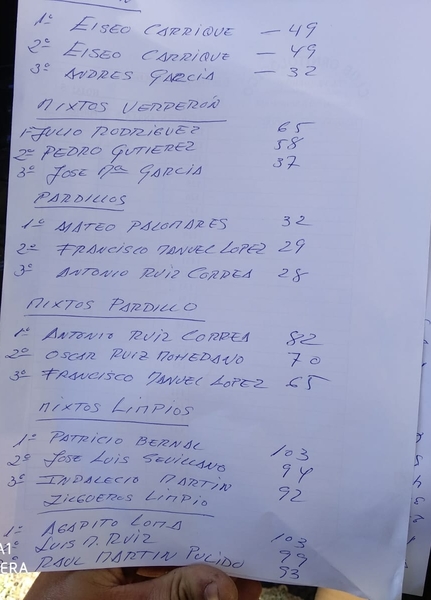 1º Eiseo Carrique - 49
2º Eiseo Carrique - 49
3º Andres Garcia - 32
Mixtos Verderón
1º Julio Rodriguez 65
2º Pedro Gutierez 58
3º Jose Mª Garcia 37
Pardillos
1º Mateo Palomares 32
2º Francisco Manuel Lopez 29
3º Antonio Ruiz Correa 28
Mixtos Pardillo
1º Antonio Ruiz Correa 82
2º Oscar Ruiz Mohedano 70
3º Francisco Manuel Lopez 65
Mixtos Limpios
1º Patricio Bernal 103
2º Jose Luis Sevillano 94
3º Indalecio Martin 92
Jilgueros Limpio
1º Agapito Loma 103
º Luis M. Ruiz 99
º Raul Martin Pulido 93